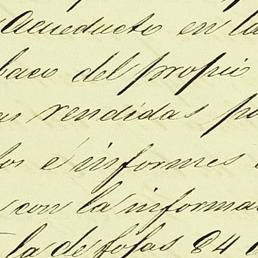 Acueducto en la
baco del propio
rendidas po
los é informes
con la informa
la de fojas 84